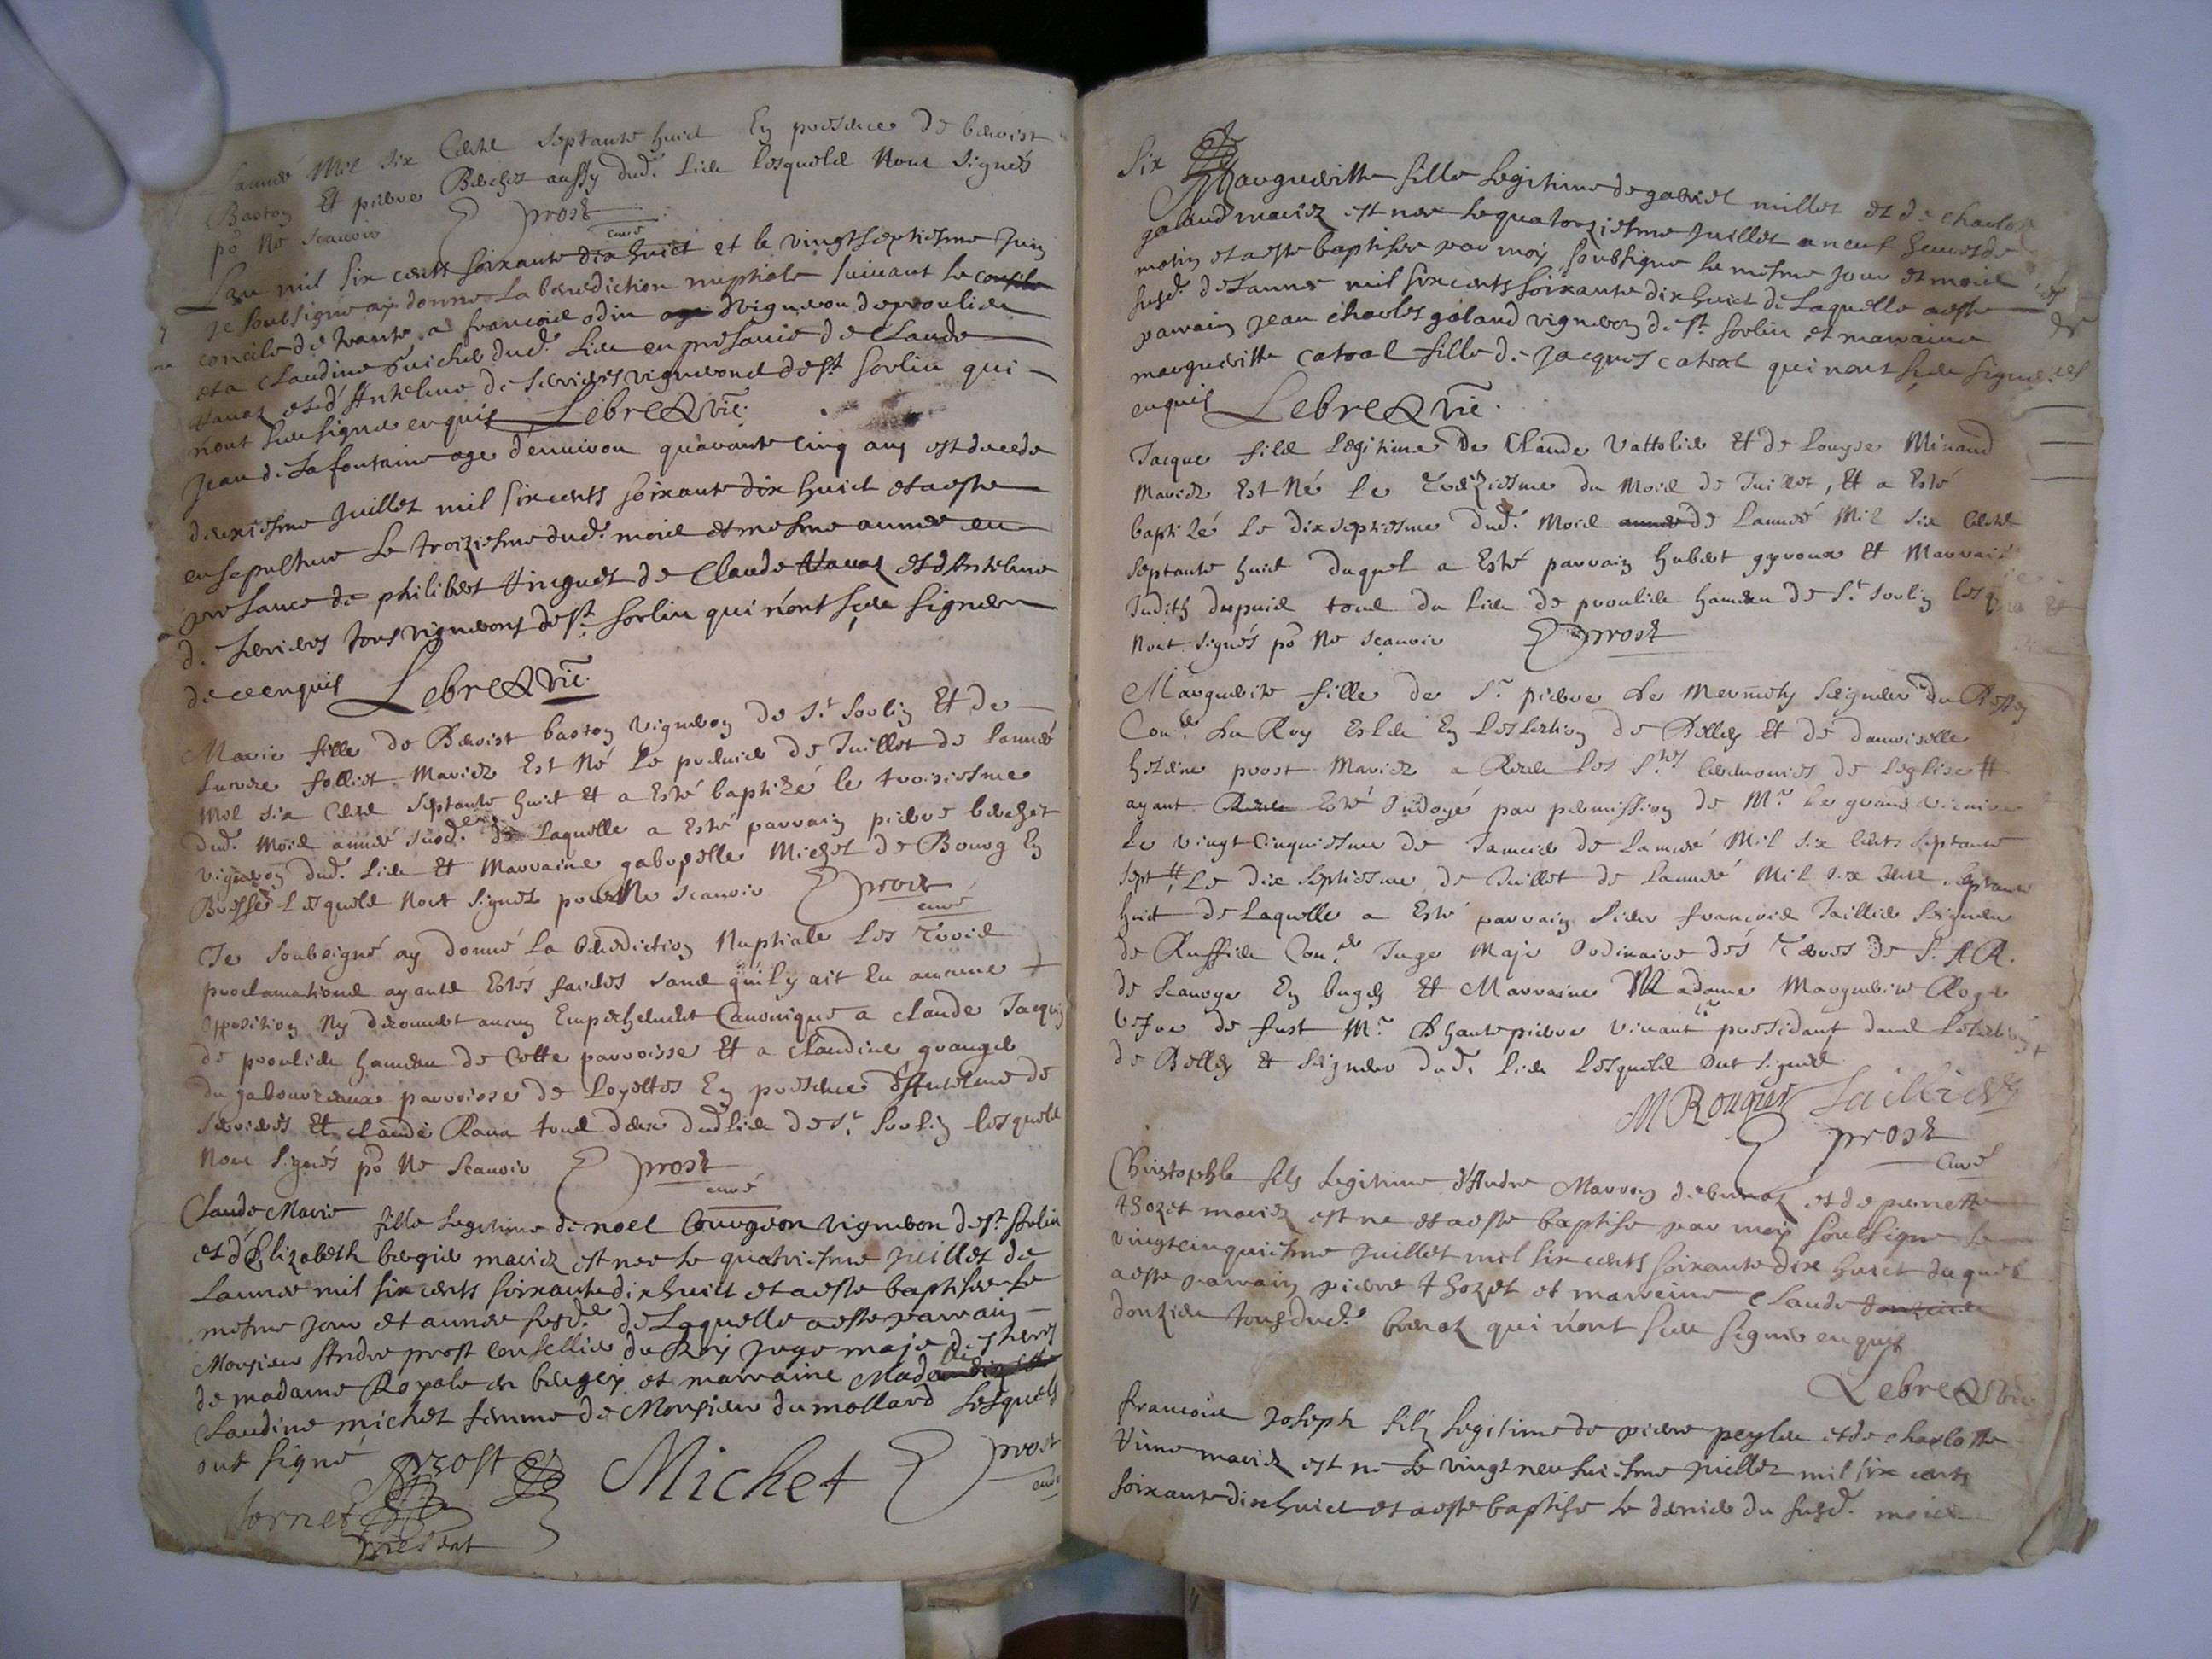 L'année Mil six Cents septante huict En presence de benoist
Baston Et pierre Berchet aussy dud. Lieu lesquels Nont signés
po Ne scauoir Prost curé
L'an mil six cents soixante dix huict et le vingtseptiesme Juin
Je soubsigné ay donne la benediction nuptiale suiuant le
concile de trante a francois odin vigneron de proulieu
et a claudine Guichel dud. Lieu en presance de Claude
Rauaz et d'Anthelme de Seruieres vignerons de st sorlin qui
n'ont sceu signe enquis LebreQ vic.
Jean de Lafontaine age d'enuiron quarante cinq ans est decede
deuxiesme Juillet mil six cents soixante dix huict et a este
ensepulture le troiziesme dud. mois et mesme annee en
presance de philibert de Claude Rauaz et d'Anthelme
de Seruieres tous vignerons de st. sorlin qui n'ont sceu signer
de ce enquis LebreQ vic.
Marie fille de Benoist baston vigneron de St Sorlin Et de
folliet Mariez Est Né le premier de Juillet de l'année
Mil six Cents septante huict Et a Esté baptizé le troisiesme
dud. Mois année susd. de Laquelle a Esté parrain pierre berchet
vigneron dud. Lieu Et Marraine gabrielle Michet de Bourg En
Bresse Lesquels Nont signes pour Ne scauoir Prost curé
Je soubsigné ay donné La benediction Nuptiale Les Trois
proclamations ayants Estés faictes sans quil y ait Eu aucune
opposition Ny decouuert aucun Empechement Canonique a claude Jacquin
de proulieu hameau de Cette parroisse Et a claudine granger
du parroisse de Loyettes En presence d'Antelme de
Seruieres Et claude Raua tous deux dud Lieu de St. Sorlin lesquels
Nont signés po Ne scauoir Prost curé
Claude Marie fille legitime de noel Courgeon vigneron de st. sorlin
et d'Elizabeth bergier mariez est nee le quatriesme Juillet de
L'annee mil six cents soixante dix huict et a este baptisee le
mesme jour et annee susd. de Laquelle a este parrain
Monsieur Andre prost conseillier du Roy juge maje des terres
de madame Royale en beugey et marraine
Claudine michet femme de Monsieur du mollard Lesquels
ont signé Prost Michet Prost curé
Sornet
present
Six
Margueritte fille legitime de gabriel millet et de charlotte
galand mariez est nee le quatorziesme Juillet a neuf heures de
matin et a este baptisee par moy soubsigne le mesme jour et mois
susd. de L'annee mil six cents soixante dix huict de Laquelle a este
parrain Jean charles galand vigneron de st. sorlin et marraine
margueritte catral fille de Jacques catral qui n'ont sceu signe
enquis LebreQ vic.
Jacque fils Legitime de Claude Vattolier Et de Louyse Minand
Mariez Est Né le Treiziesme du Mois de Juillet, Et a Esté
baptizé le dix septiesme dud. Mois année de L'année Mil six Cents
Septante huict Duquel a Esté parrain hubert gyroux Et Marraine
Judith dupuis tous du Lieu de proulieu hameau de St. Sorlin
Nont signés po Ne scauoir Prost
Marguerite fille de Sr. pierre de Seigneur du
Conr. du Roy En l'eslection de Belley Et de damoiselle
helene prost Mariez a Receu Les Stes Ceremonies de L'eglise
ayant Receu Esté Ondoyé par permission de Mr. Le grand vicaire
Le vingt Cinquiesme de Januier de L'année Mil six Cents Septante
Sept Le dix Septiesme de Juillet de L'année Mil six Cents Septante
huict de Laquelle a Esté parrain Sieur francois Taillier Seigneur
de Ruffieu Conr. Juge Maje Ordinaire des Terres de S. A R.
de Scauoye En bugey Et Marraine Madame Marguerite
vefue de fust Mr. D hautepierre viuant president dans L'eslection
de Belley Et Seigneur dud. Lieu Lesquels Ont signés
M Rougier Taillier
Prost
Curé
Christophle fils Legitime d'Andre Marron de benoz et de pernette
thozet mariez est ne et a este baptise par moy soubsigne le
vingtcinquiesme Juillet mil six cents soixante dix huict duquel
a este parrain pierre thozet et marreine Claude donzieu
donzieu tous dud. benoz qui n'ont sceu signe enquis
LebreQ vic
francois Joseph fils legitime de pierre peysson et de charlotte
mariez est ne le vingt neufuiesme Juillet mil six cents
soixante dix huict et a este baptise le dernier du susd. mois